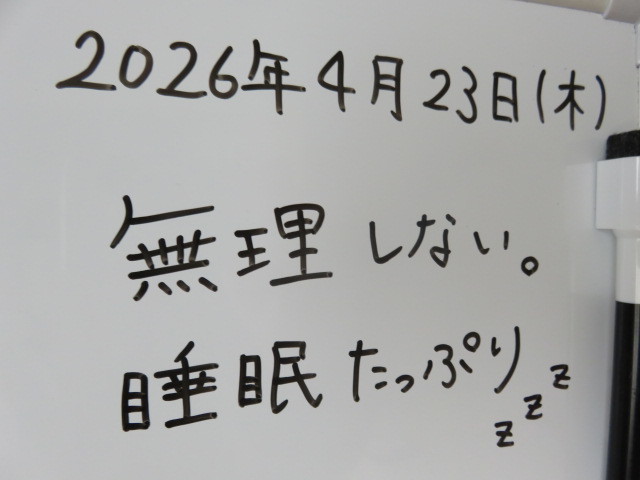 2026年4月23日(木)
無理しない。
睡眠たっぷり zzz